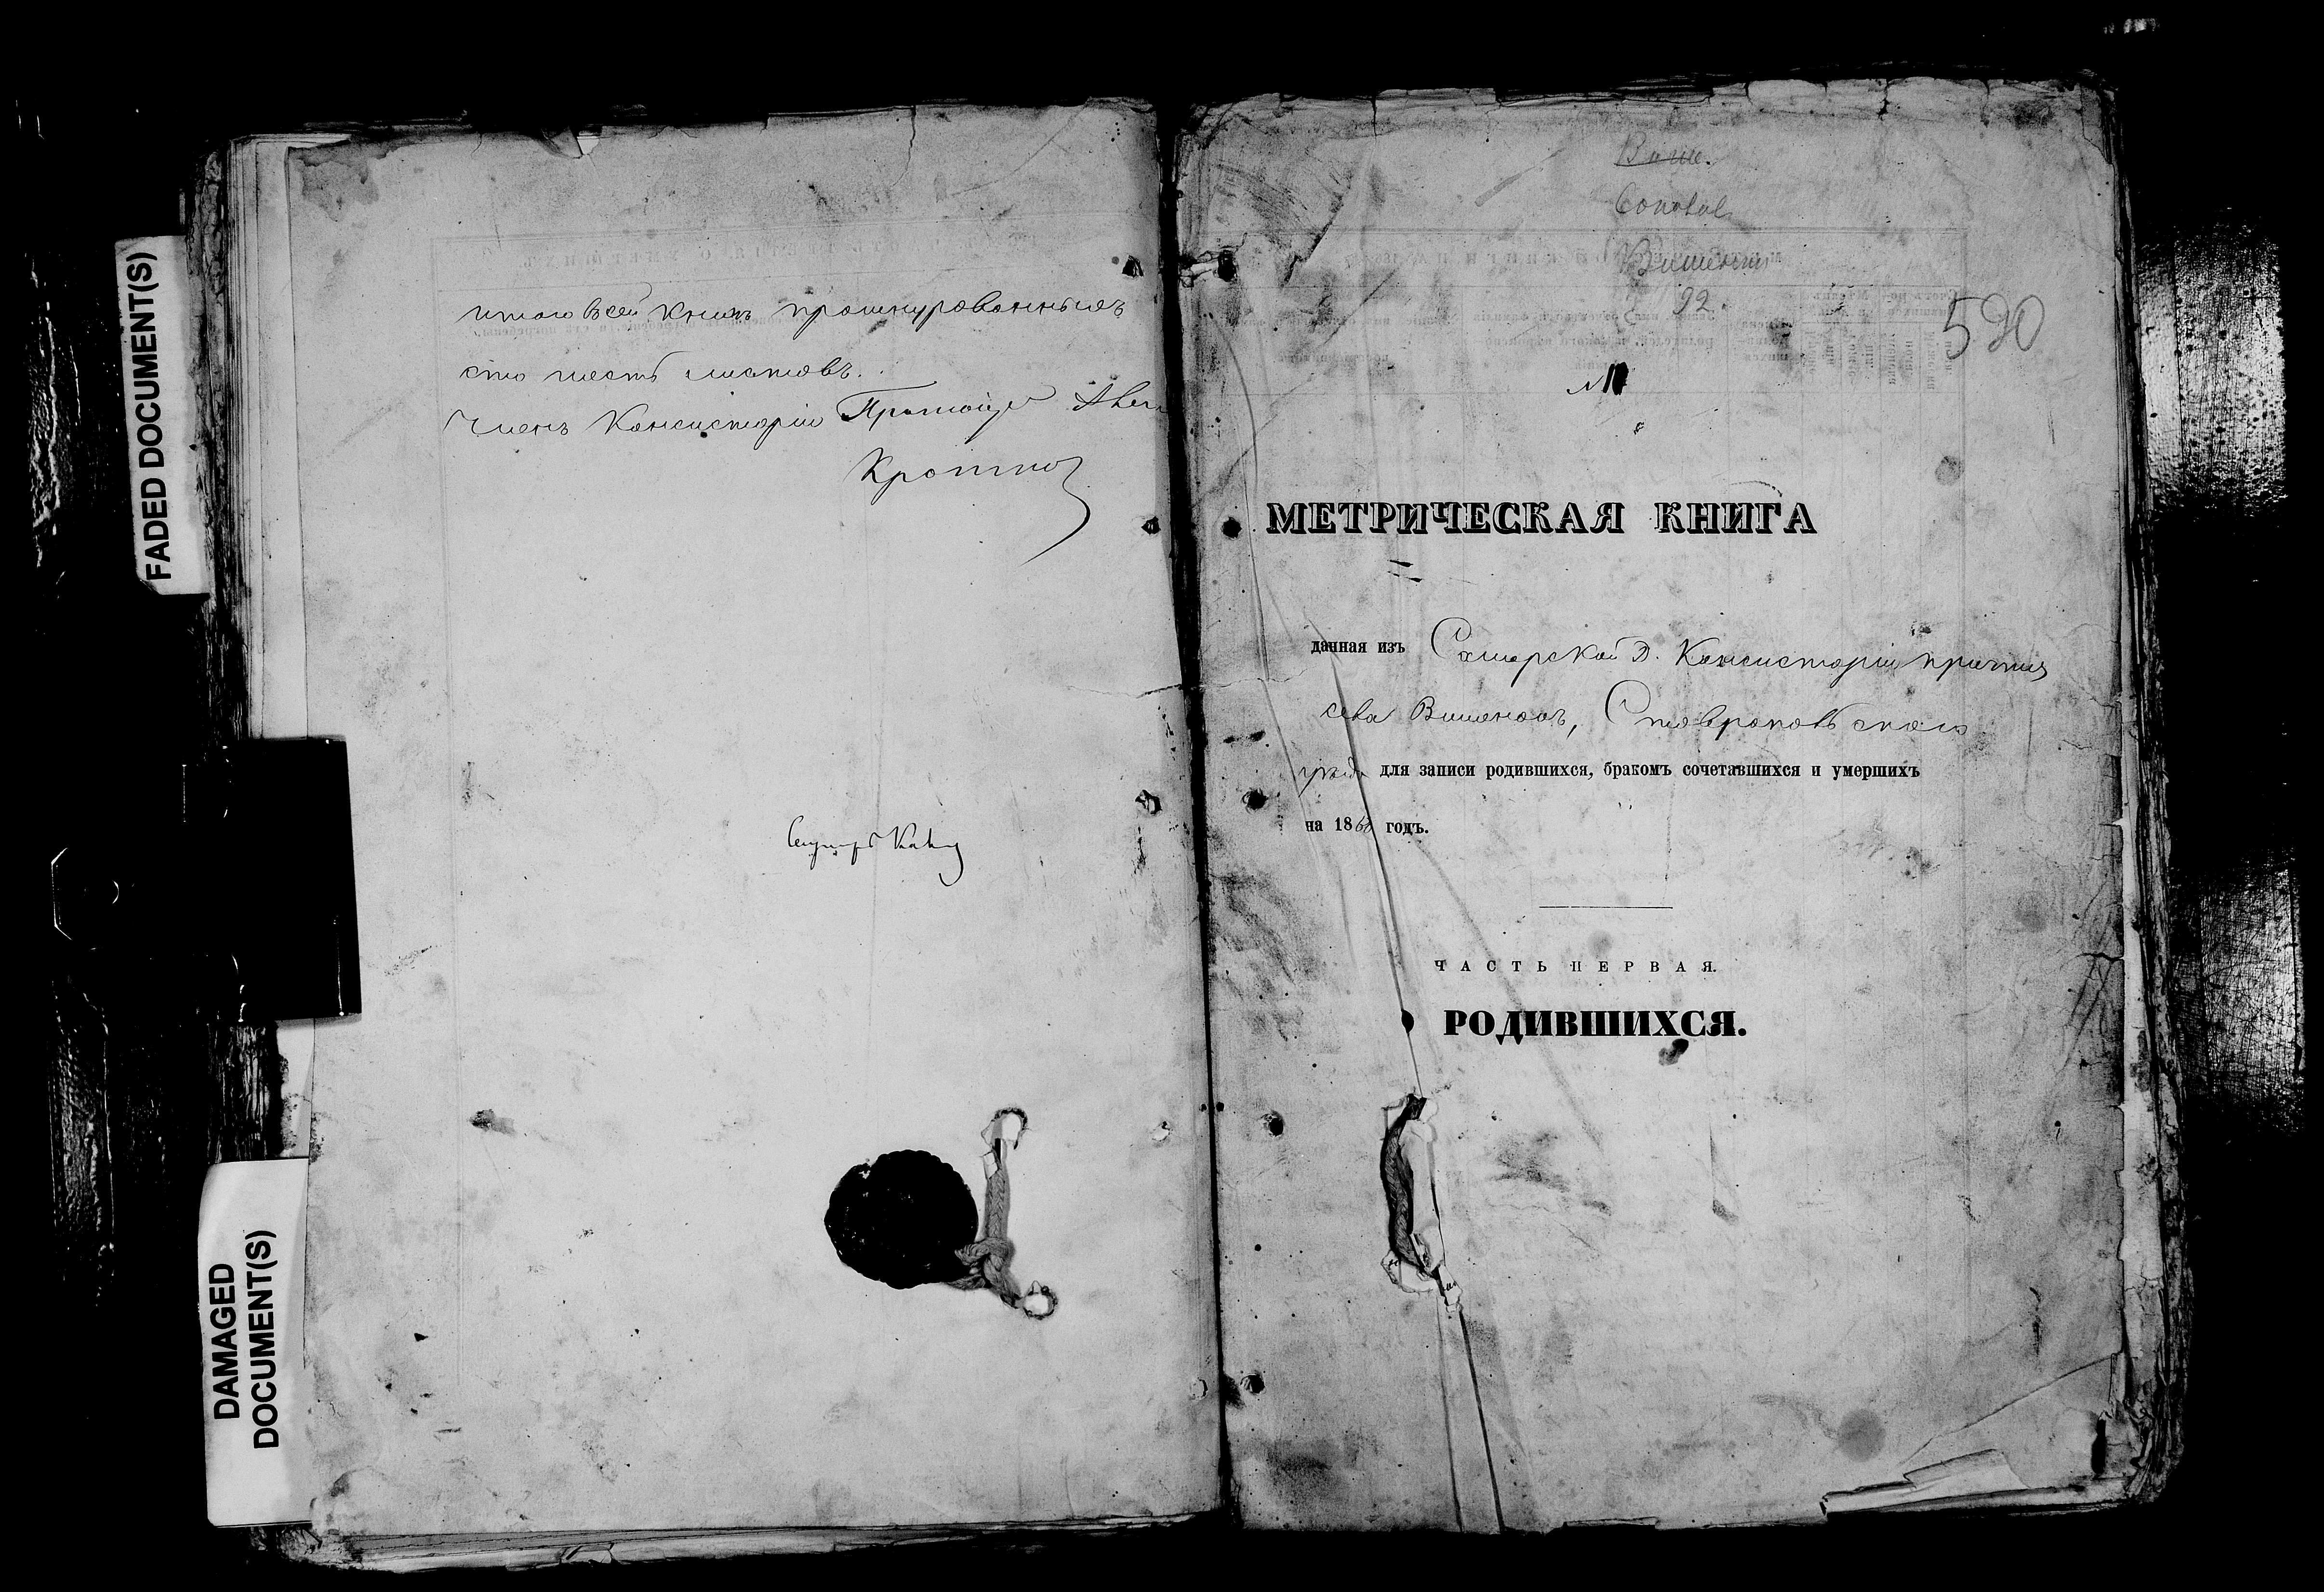 FADED DOCUMENT(S)
DAMAGED
DOCUMENT(S)
итого всей книгѣ прошнурованныхъ
сто шесть листовъ.
Членъ Консисторіи
Выше.
92.
590
№
МЕТРИЧЕСКАЯ КНИГА
данная изъ Самарской Д. Консисторіи
села Вишенокъ, Ставропольскаго
уѣзда для записи родившихся, бракомъ сочетавшихся и умершихъ
на 1868 годъ.
ЧАСТЬ ПЕРВАЯ.
РОДИВШИХСЯ.